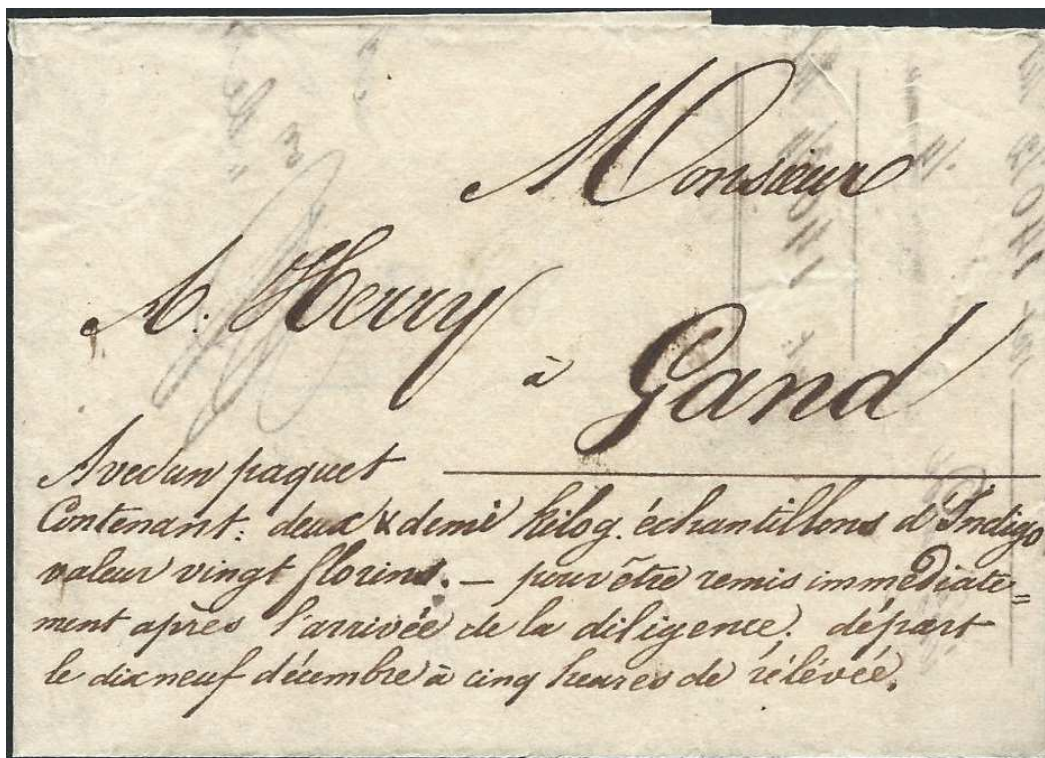 Monsieur
A. Henry
à Gand
Avec un paquet
Contenant: deux & demi kilog. échantillons d'Indigo
valeur vingt florins. — pour être remis immédiate=
ment après l'arrivée de la diligence. départ
le dix neuf décembre à cinq heures de rélévée.